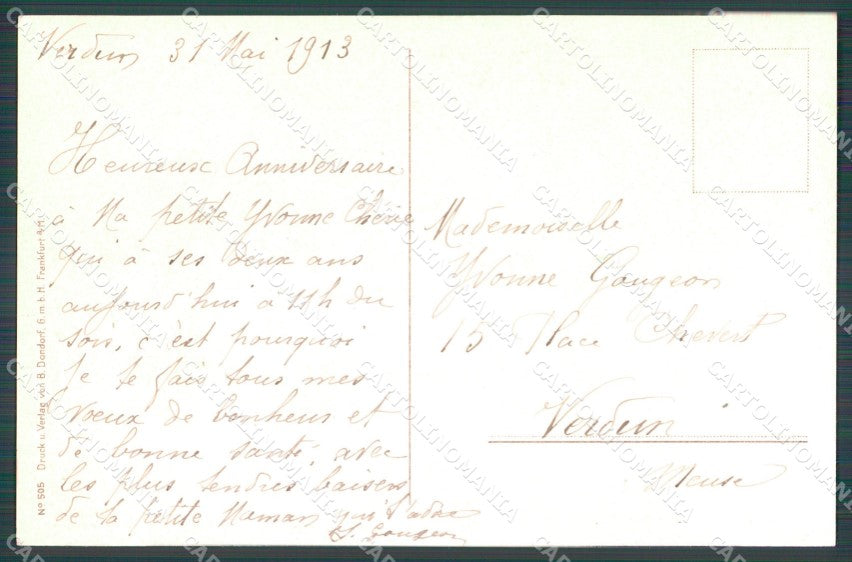 Verdun 31 Mai 1913
Heureux Anniversaire
à Ma petite Yvonne Chérie
qui à ses deux ans
aujourd'hui à 11h du
soir, c'est pourquoi
je te fais tous mes
voeux de bonheur et
de bonne santé, avec
les plus tendres baisers
de ta petite Maman qui t'adore
Gougeon
Mademoiselle
Yvonne Gougeon
15 Place Chevert
Verdun
Meuse
No 505 Druck u. Verlag von B. Dondorf, G.m.b.H. Frankfurt a/M.
CARTOLINOMANIA